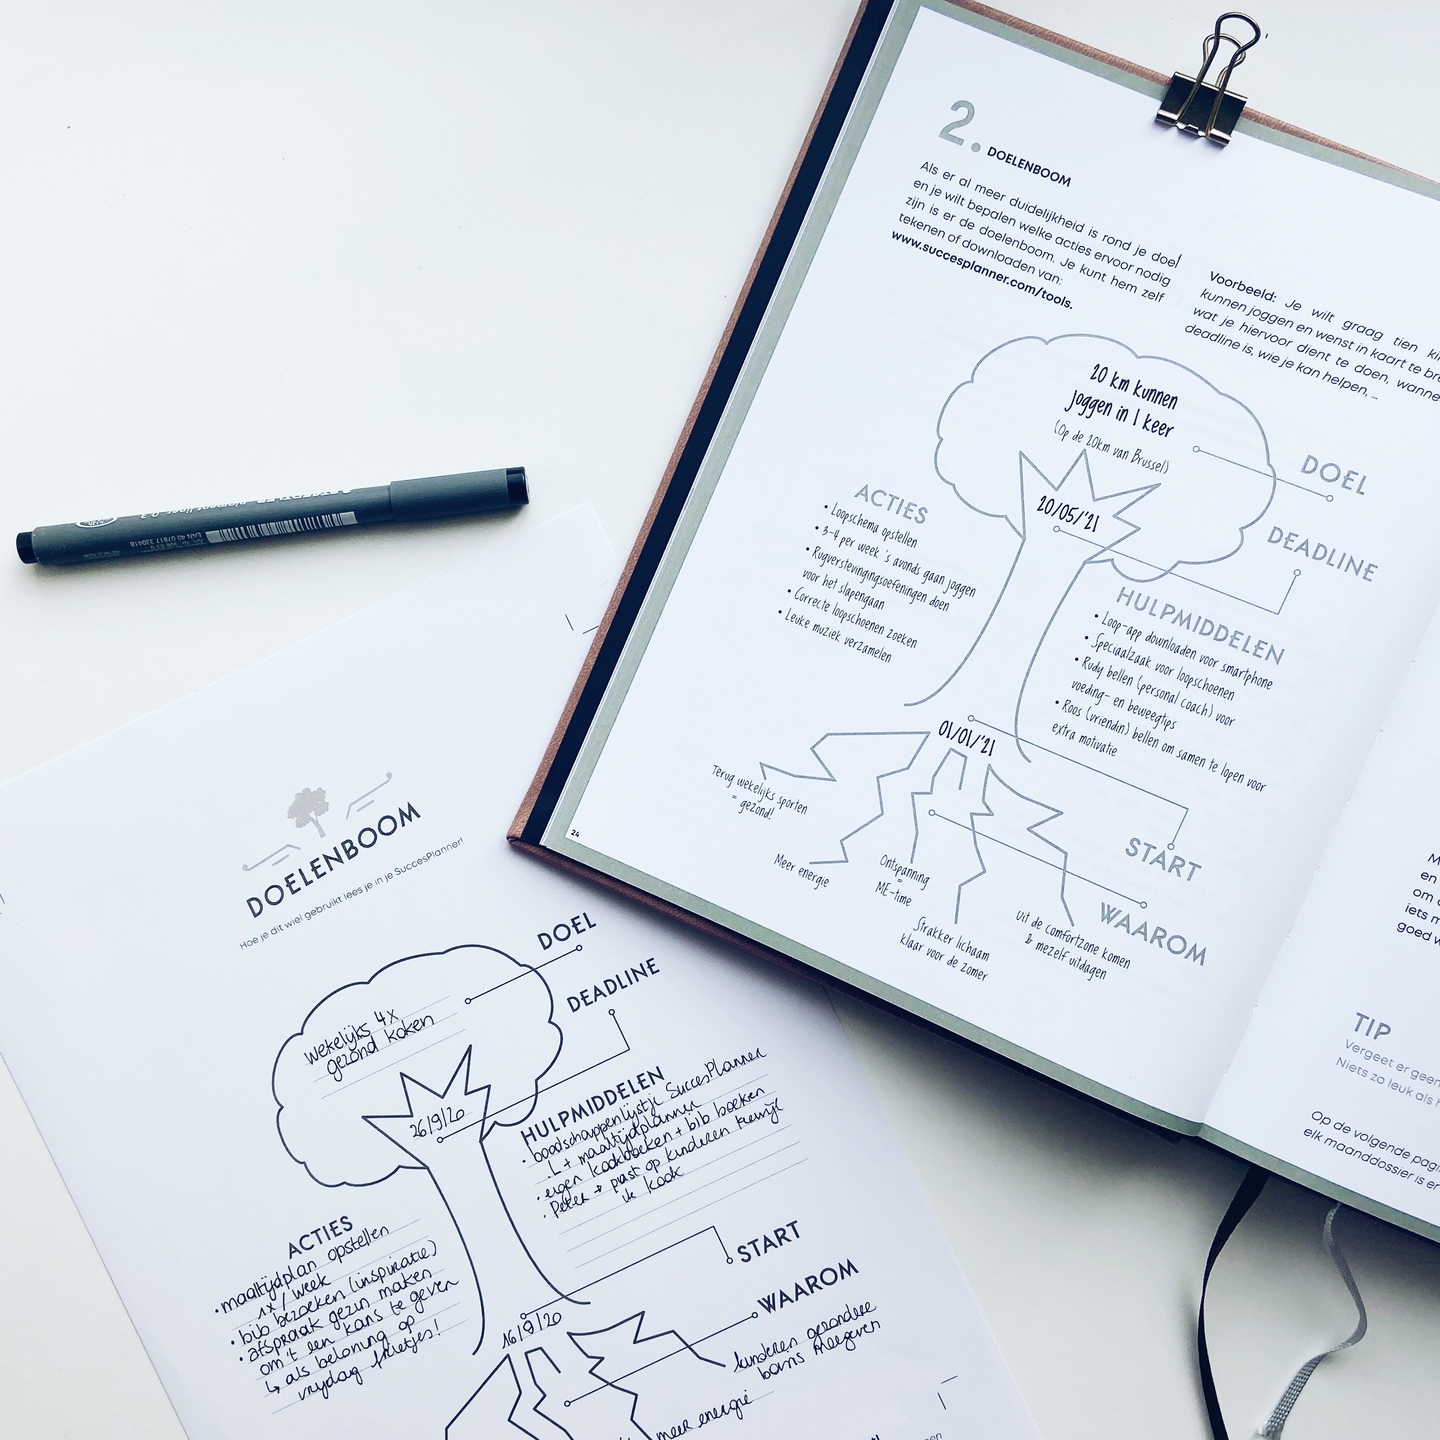 2. DOELENBOOM
Als er al meer duidelijkheid is rond je doel
en je wilt bepalen welke acties ervoor nodig
zijn is er de doelenboom. Je kunt hem zelf
tekenen of downloaden van:
www.succesplanner.com/tools.
Voorbeeld: Je wilt graag tien
kunnen joggen en wenst in kaart te
wat je hiervoor dient te doen,
deadline is, wie je kan helpen, ...
20 km kunnen
joggen in 1 keer
(Op de 20km van Brussel)
DOEL
20/05/'21
DEADLINE
ACTIES
• Loopschema opstellen
• 3-4 per week 's avonds gaan joggen
• Rugverstevigingsoefeningen doen
voor het slapengaan
• Correcte loopschoenen zoeken
• Leuke muziek verzamelen
HULPMIDDELEN
• Loop-app downloaden voor smartphone
• Speciaalzaak voor loopschoenen
• Rudy bellen (personal coach) voor
voeding- en beweegtips
• Roos (vriendin) bellen om samen te lopen voor
extra motivatie
01/01/'21
START
WAAROM
Terug wekelijks sporten
= gezond!
Meer energie
Ontspanning
=
ME-time
Strakker lichaam
klaar voor de zomer
Uit de comfortzone komen
& mezelf uitdagen
24
en
om
iets
goed
TIP
Vergeet er geen
Niets zo leuk als
Op de volgende
elk maanddossier is
EAN 40 07817 330418
DOELENBOOM
Hoe je dit wiel gebruikt lees je in je SuccesPlanner!
DOEL
DEADLINE
wekelijks 4x
gezond koken
26/9/20
HULPMIDDELEN
• boodschappenlijstje SuccesPlanner
↳ + maaltijdplanner
• eigen kookboeken + bib boeken
• Peter → past op kinderen terwijl
ik kook
ACTIES
• maaltijdplan opstellen
1x/week
• bib bezoeken (inspiratie)
• afspraak gezin maken
om 't een kans te geven
↳ als beloning op
vrijdag frietjes!
START
16/9/20
WAAROM
kinderen gezondere
basis meegeven
meer energie